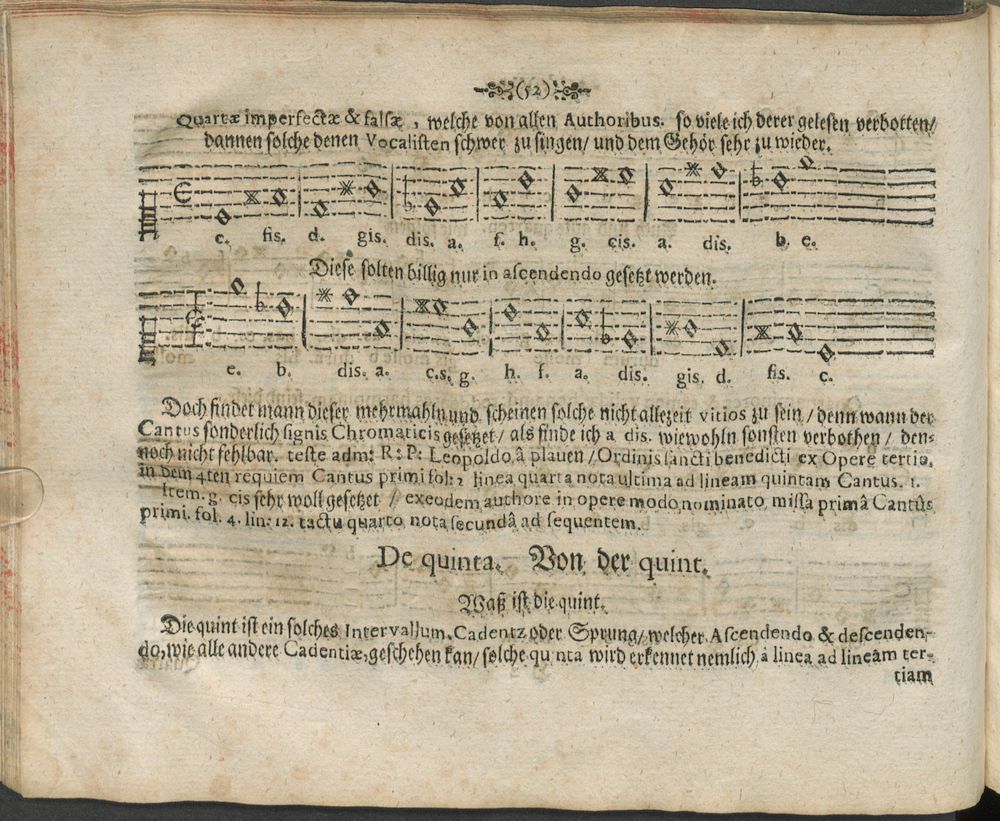 (52)
Quartæ imperfectæ & falsæ, welche von allen Authoribus. so viele ich derer gelesen verbotten/
dannen solche denen Vocalisten schwer zu singen/ und dem Gehör sehr zu wieder.
c. fis. d. gis. dis. a. f. h. g. cis. a. dis. b. e.
Diese solten billig nur in ascendendo gesetzt werden.
e. b. dis. a. c.s. g. h. f. a. dis. gis. d. fis. c.
Doch findet mann dieser mehrmahln und scheinen solche nicht allezeit vitios zu sein / denn wann der
Cantus sonderlich signis Chromaticis gesetzet / als finde ich a dis. wiewohln sonsten verbothen / den-
noch nicht fehlbar. teste adm: R: P: Leopoldo â plauen / Ordinis sancti benedicti ex Opere tertio.
in dem 4ten requiem Cantus primi fol: 2 linea quarta nota ultima ad lineam quintam Cantus. 1.
Item. g. cis sehr woll gesetzet / exeodem authore in opere modo nominato missa primâ Cantûs
primi. fol. 4. lin: 12. tactu quarto nota secundâ ad sequentem.
De quinta. Von der quint.
Waß ist die quint.
Die quint ist ein solches Intervallum, Cadentz oder Sprung/ welcher Ascendendo & descenden-
do, wie alle andere Cadentiæ, geschehen kan/ solche qu nta wird erkennet nemlich â linea ad lineam ter-
tiam